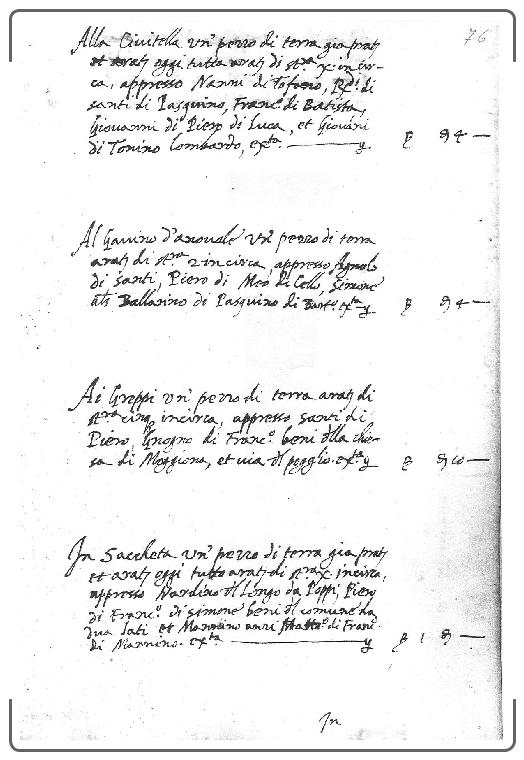 76
Alla Civitella un' pezzo di terra gia prat:
et arat: oggi tutta arat: di st.ra x. incir-
ca, appresso Nanni di Tofano, Red.i di
santi di Pasquino, Franc.o di Batista,
Giovanni di Piero di Luca, et Giovāni
di Tonino lombardo, ex.ta
4 —
Al Gavino d'arovale un' pezzo di terra
arat: di st.ra 2 incirca, appresso Agnolo
di santi, Piero di Meo di Cello, Simone
als Ballarino di Pasquino di Bart.o ex.ta
4 —
Ai Greppi un' pezzo di terra arat: di
st.ra cinq. incirca, appresso santi di
Piero, Gnogno di Franc.o beni dlla chie-
sa di Moggiona, et via dl poggio. ex.ta
10 —
In Saccheta un' pezzo di terra gia prat:
et arat: oggi tutto arat: di st.ra x. incirca,
appresso Nardino dl Longo da Poppi, Piero
di Franc.o di simone beni dl comune da
dua lati et Mannino di Franc.o
di Mannino. ex.ta
1 —
In